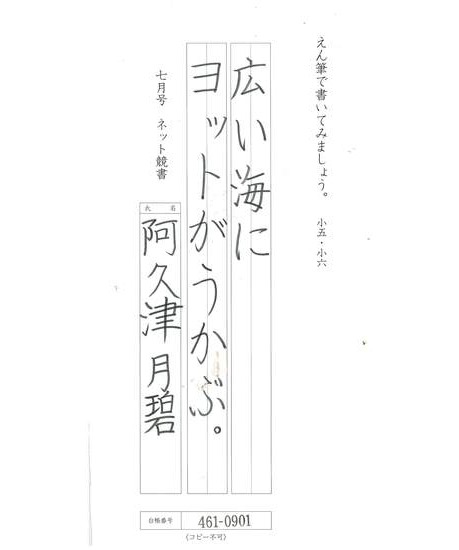 えん筆で書いてみましょう。 小五・小六
広い海に
ヨットがうかぶ。
七月号 ネット競書
氏名
阿久津月碧
台帳番号 461-0901
(コピー不可)